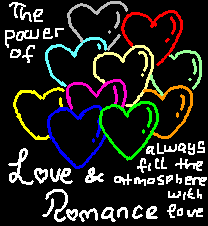 The
power
of
Love &
Romance
always
fill the
atmosphere
with
love